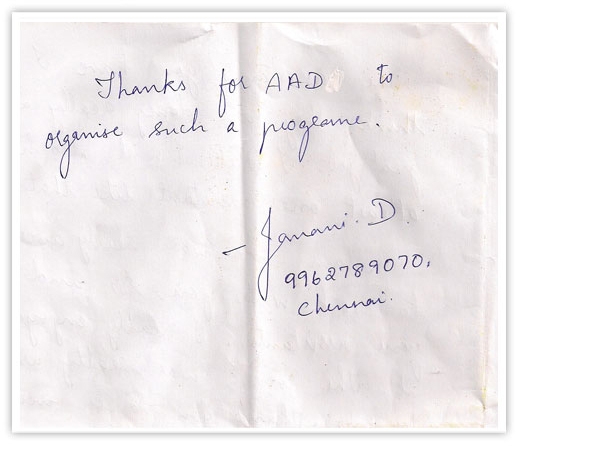 Thanks for AAD to
organise such a programe.
- Janani. D.
9962789070.
Chennai.